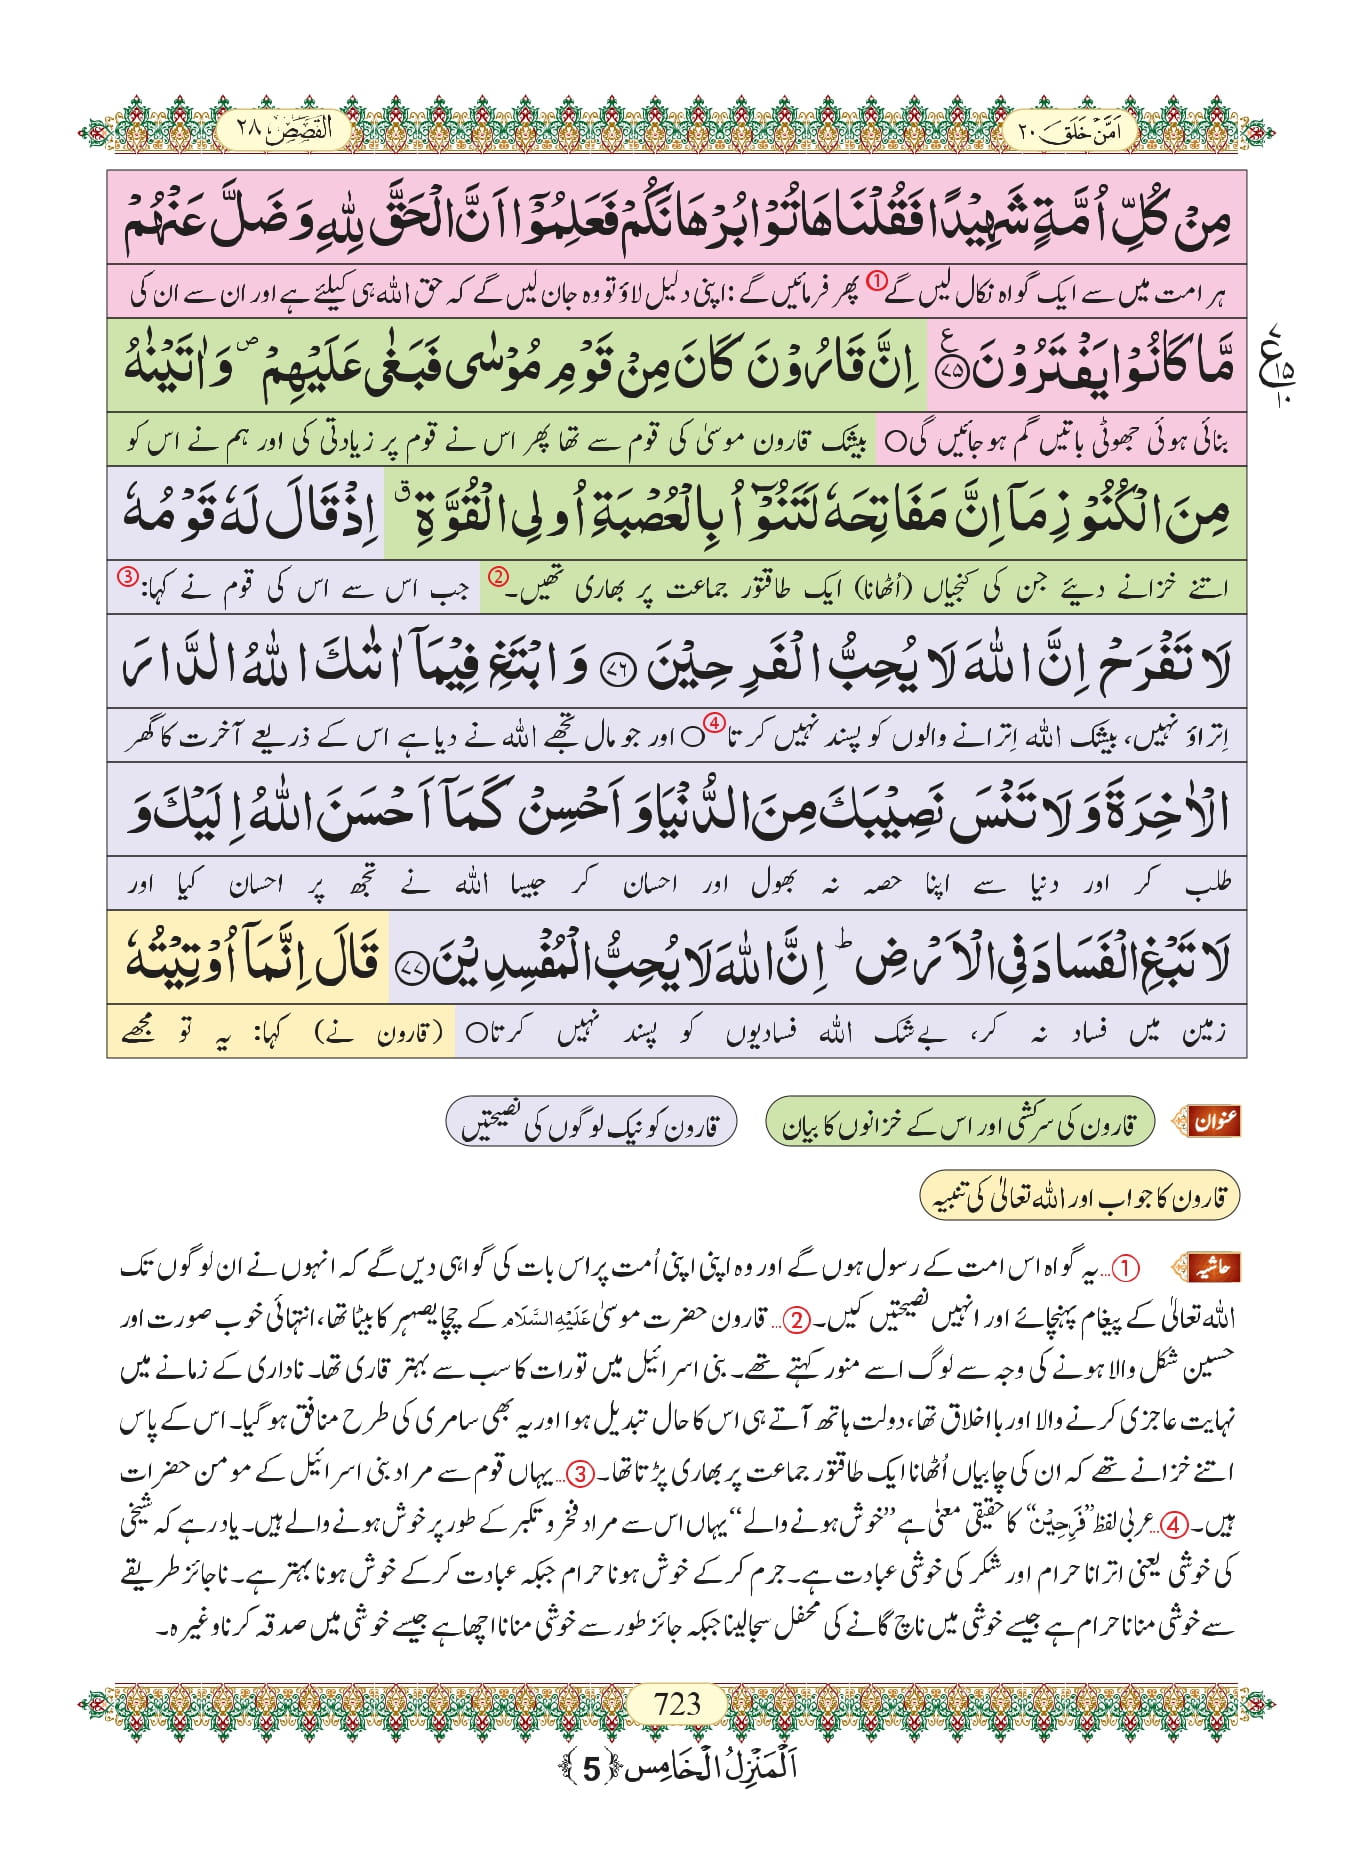 اَمَّنْ خَلَقَ ٢٠
القَصَص ٢٨
مِنْ كُلِّ اُمَّةٍ شَهِیْدًا فَقُلْنَا هَاتُوْا بُرْهَانَكُمْ فَعَلِمُوْۤا اَنَّ الْحَقَّ لِلّٰهِ وَ ضَلَّ عَنْهُمْ
ہر امت میں سے ایک گواہ نکال لیں گے① پھر فرمائیں گے: اپنی دلیل لاؤ تو وہ جان لیں گے کہ حق اللہ ہی کیلئے ہے اور ان سے ان کی
مَّا كَانُوْا یَفْتَرُوْنَ۠ ﴿۷۵﴾ اِنَّ قَارُوْنَ كَانَ مِنْ قَوْمِ مُوْسٰى فَبَغٰى عَلَیْهِمْ۪ وَ اٰتَیْنٰهُ
ع ۷ ۱۵ ۱۰
بنائی ہوئی جھوٹی باتیں گم ہوجائیں گی○ بیشک قارون موسیٰ کی قوم سے تھا پھر اس نے قوم پر زیادتی کی اور ہم نے اس کو
مِنَ الْكُنُوْزِ مَاۤ اِنَّ مَفَاتِحَهٗ لَتَنُوْٓاُ بِالْعُصْبَةِ اُولِی الْقُوَّةِۗ اِذْ قَالَ لَهٗ قَوْمُهٗ
اتنے خزانے دیئے جن کی کنجیاں (اُٹھانا) ایک طاقتور جماعت پر بھاری تھیں۔② جب اس سے اس کی قوم نے کہا:③
لَا تَفْرَحْ اِنَّ اللّٰهَ لَا یُحِبُّ الْفَرِحِیْنَ ﴿۷۶﴾ وَ ابْتَغِ فِیْمَاۤ اٰتٰىكَ اللّٰهُ الدَّارَ
اِتراؤ نہیں، بیشک اللہ اِترانے والوں کو پسند نہیں کرتا④○ اور جو مال تجھے اللہ نے دیا ہے اس کے ذریعے آخرت کا گھر
الْاٰخِرَةَ وَ لَا تَنْسَ نَصِیْبَكَ مِنَ الدُّنْیَا وَ اَحْسِنْ كَمَاۤ اَحْسَنَ اللّٰهُ اِلَیْكَ وَ
طلب کر اور دنیا سے اپنا حصہ نہ بھول اور احسان کر جیسا اللہ نے تجھ پر احسان کیا اور
لَا تَبْغِ الْفَسَادَ فِی الْاَرْضِؕ اِنَّ اللّٰهَ لَا یُحِبُّ الْمُفْسِدِیْنَ ﴿۷۷﴾ قَالَ اِنَّمَاۤ اُوْتِیْتُهٗ
زمین میں فساد نہ کر، بے شک اللہ فسادیوں کو پسند نہیں کرتا○ (قارون نے) کہا: یہ تو مجھے
عنوان قارون کی سرکشی اور اس کے خزانوں کا بیان قارون کو نیک لوگوں کی نصیحتیں
قارون کا جواب اور اللہ تعالیٰ کی تنبیہ
حاشیہ ①...یہ گواہ اس امت کے رسول ہوں گے اور وہ اپنی اپنی اُمت پر اس بات کی گواہی دیں گے کہ انہوں نے ان لوگوں تک
اللہ تعالیٰ کے پیغام پہنچائے اور انہیں نصیحتیں کیں۔②...قارون حضرت موسیٰ عَلَیْهِ السَّلَام کے چچا یصہر کا بیٹا تھا، انتہائی خوب صورت اور
حسین شکل والا ہونے کی وجہ سے لوگ اسے منور کہتے تھے۔ بنی اسرائیل میں تورات کا سب سے بہتر قاری تھا۔ ناداری کے زمانے میں
نہایت عاجزی کرنے والا اور بااخلاق تھا، دولت ہاتھ آتے ہی اس کا حال تبدیل ہوا اور یہ بھی سامری کی طرح منافق ہوگیا۔ اس کے پاس
اتنے خزانے تھے کہ ان کی چابیاں اُٹھانا ایک طاقتور جماعت پر بھاری پڑتا تھا۔③...یہاں قوم سے مراد بنی اسرائیل کے مومن حضرات
ہیں۔④...عربی لفظ ”فَرِحِیْنَ“ کا حقیقی معنیٰ ہے ”خوش ہونے والے“ یہاں اس سے مراد فخر و تکبر کے طور پر خوش ہونے والے ہیں۔ یاد رہے کہ شیخی
کی خوشی یعنی اترانا حرام اور شکر کی خوشی عبادت ہے۔ جرم کرکے خوش ہونا حرام جبکہ عبادت کرکے خوش ہونا بہتر ہے۔ ناجائز طریقے
سے خوشی منانا حرام ہے جیسے خوشی میں ناچ گانے کی محفل سجا لینا جبکہ جائز طور سے خوشی منانا اچھا ہے جیسے خوشی میں صدقہ کرنا وغیرہ۔
723
اَلْمَنْزِلُ الْخَامِس ﴿5﴾